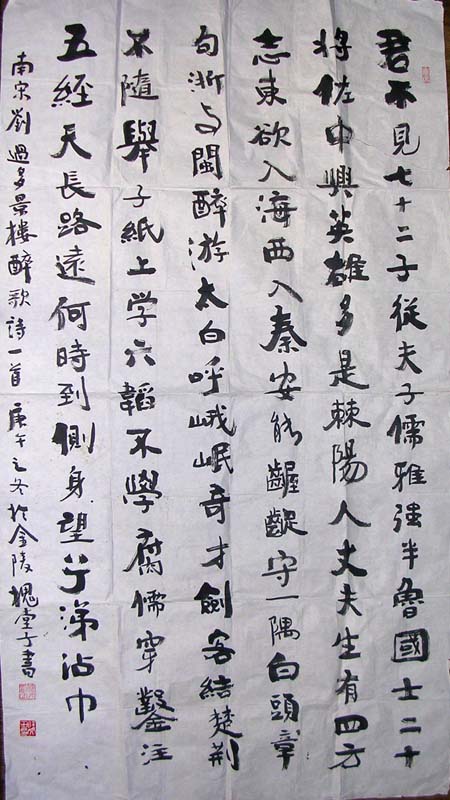 君不見七十二子從夫子儒雅强半魯國士二十
將佐中興英雄多是棘陽人丈夫生有四方
志東欲入海西入秦安能齷齪守一隅白頭章
句浙与閩醉游太白呼峨岷奇才劍客結楚荆
不隨舉子紙上学六韜不學腐儒穿鑿注
五經天長路遠何時到側身望兮涕沾巾
南宋劉過多景樓醉歌詩一首 庚午之冬於金陵槐堂子書